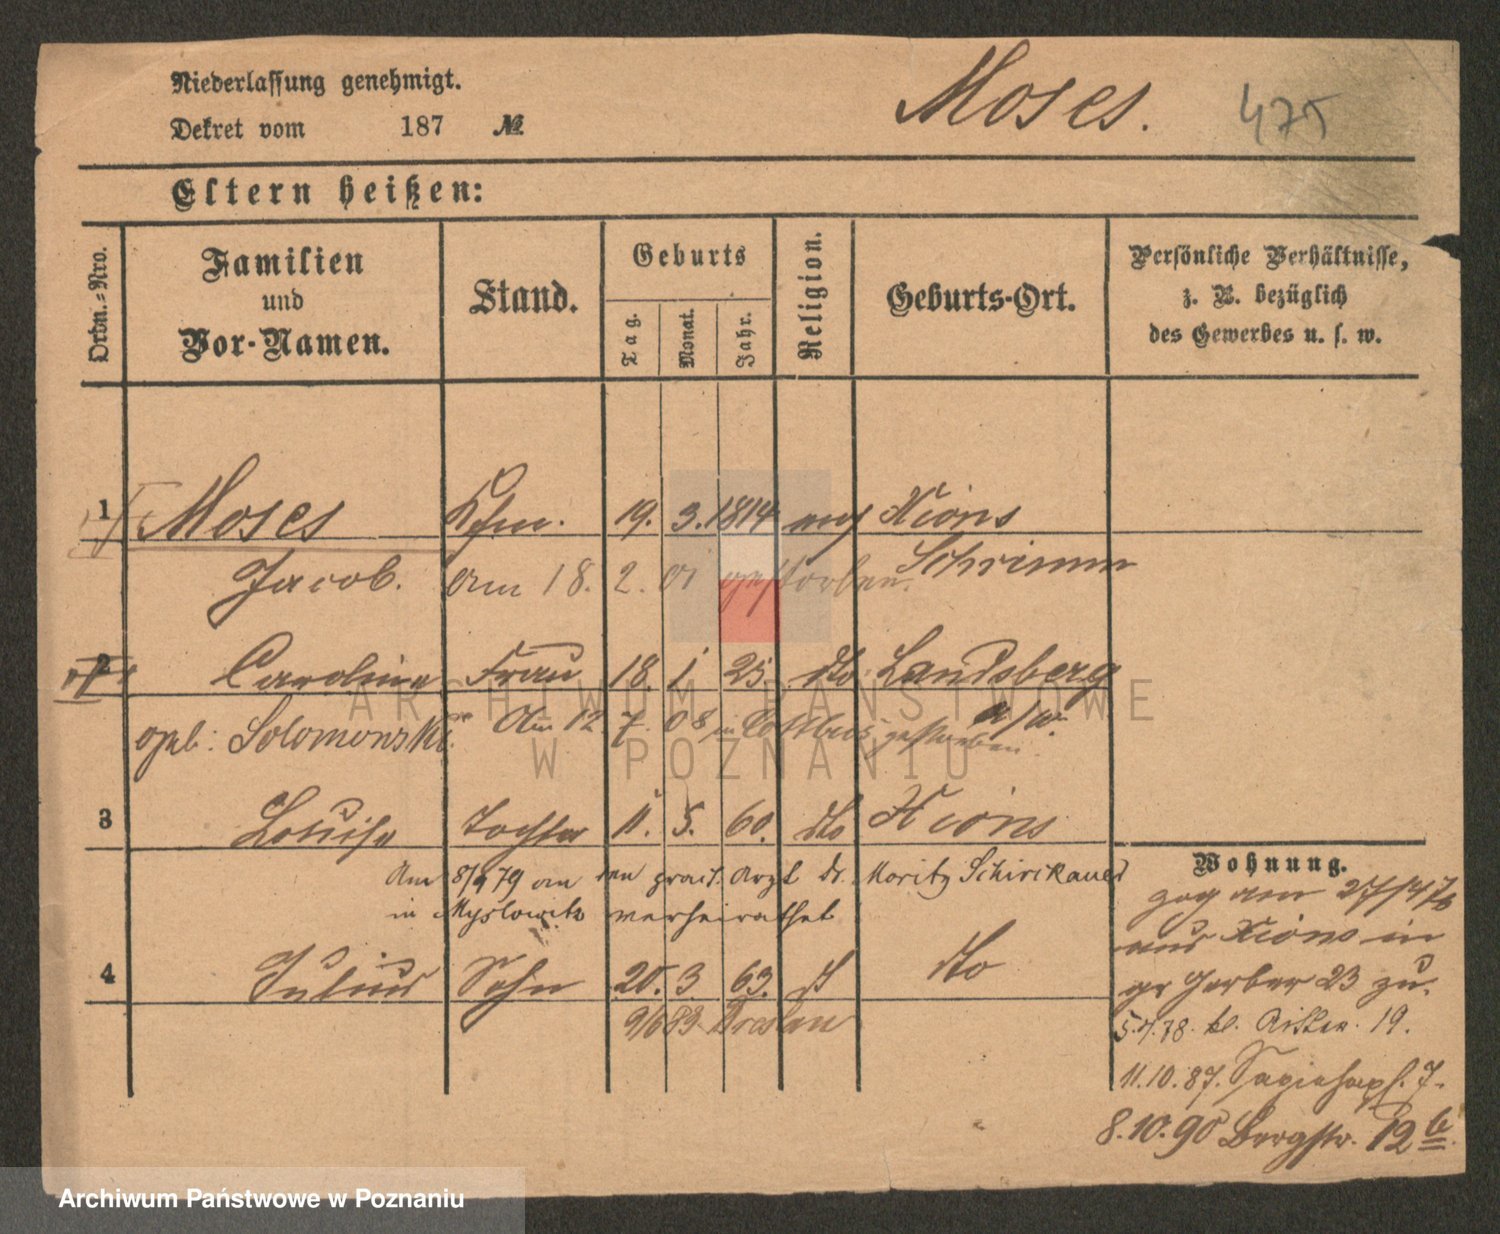 Niederlassung genehmigt.
Dekret vom 187 №
Moses. 475
Eltern heißen:
Ordn.=Nro.
Familien
und
Vor-Namen.
Stand.
Geburts
Tag.
Monat.
Jahr.
Religion.
Geburts-Ort.
Persönliche Verhältnisse,
z. B. bezüglich
des Gewerbes u. s. w.
1 Moses Kfm. 19. 3. 1814 mos Xions
Jacob. am 18. 2. 01 gestorben. Schrimm
2 Caroline Frau 18. 1 25 dto Landsberg
geb: Solomonski Am 12 7. 08 in Cottbus gestorben a/W.
3 Louise Tochter 11. 5. 60. dto Xions
Am 8/9 79 an den pract. Arzt Dr. Moritz Schirckauer
in Myslowitz verheirathet
4 Julius Sohn 20. 3 63. dto
9/6 83 Breslau
Wohnung.
zog am 27/4 76
aus Xions in
gr Gerber 23 zu.
5.4.78. kl. Ritter. 19.
11.10.87. Sapiehapl. 7.
8.10.90 Bergstr. 12 b
ARCHIWUM PAŃSTWOWE
W POZNANIU
Archiwum Państwowe w Poznaniu